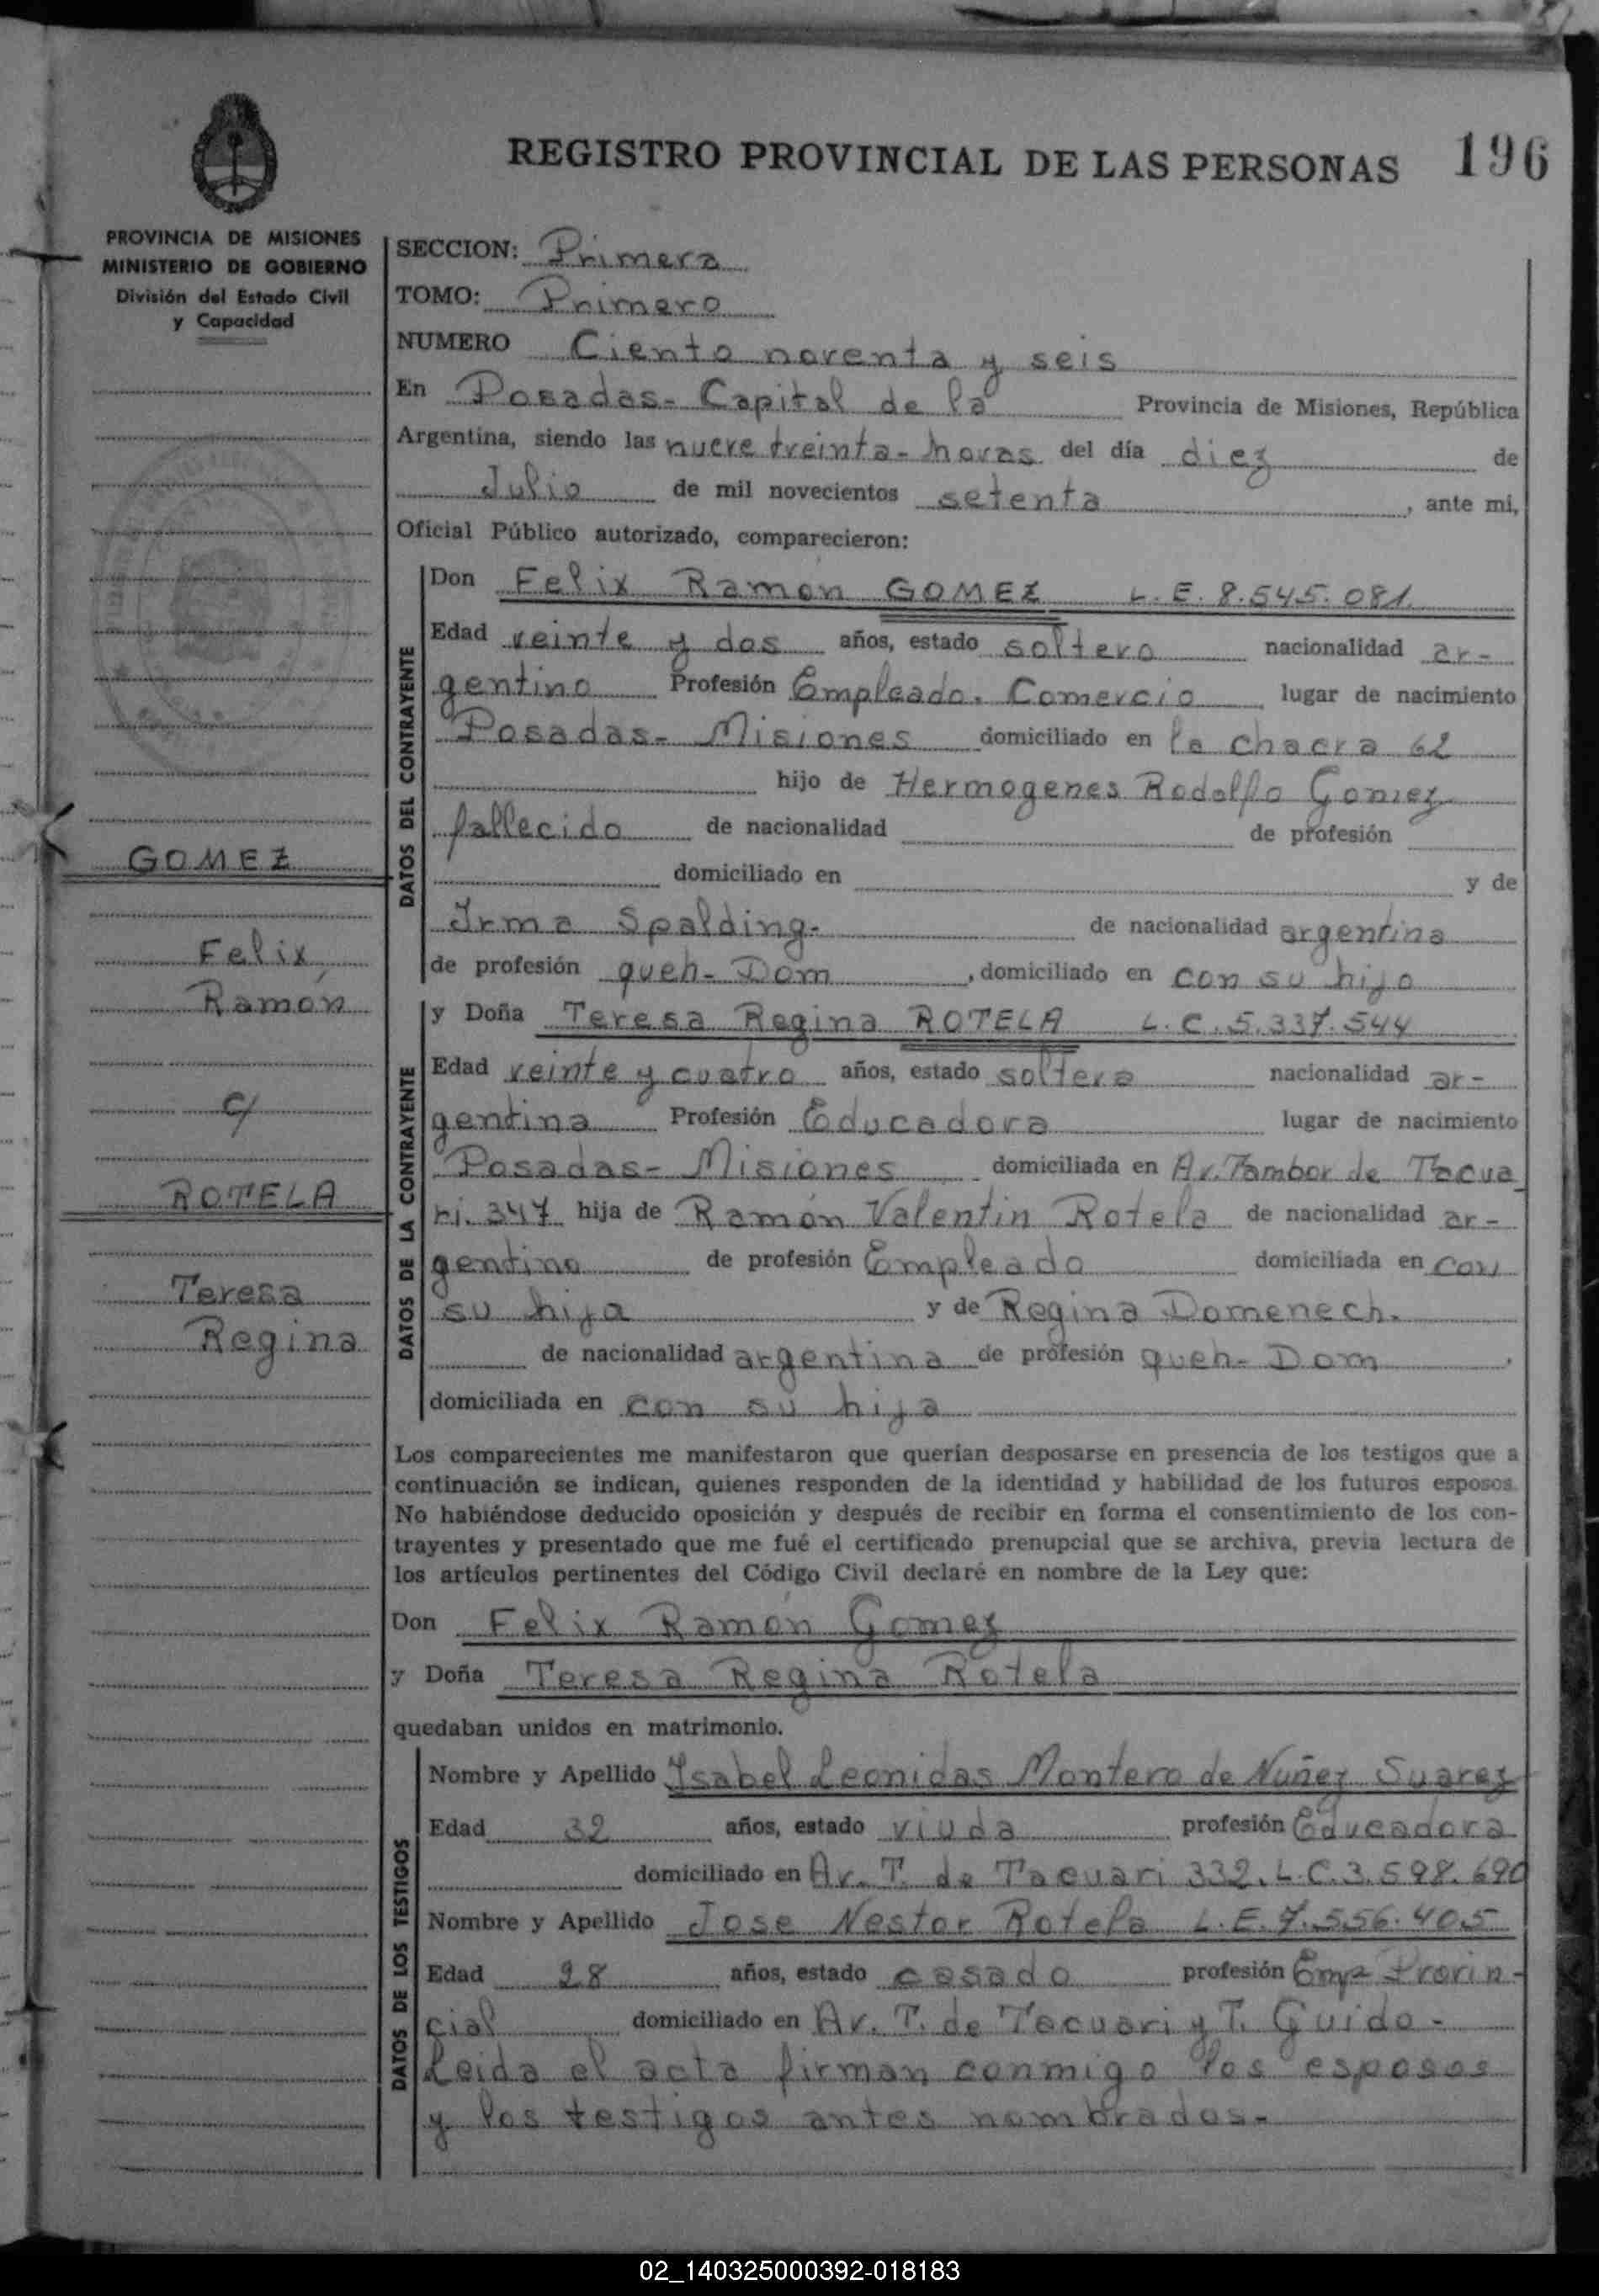 REGISTRO PROVINCIAL DE LAS PERSONAS 196
PROVINCIA DE MISIONES
MINISTERIO DE GOBIERNO
División del Estado Civil
y Capacidad
GOMEZ
Felix
Ramón
c/
ROTELA
Teresa
Regina
SECCION: Primera
TOMO: Primero
NUMERO Ciento noventa y seis
En Posadas- Capital de la Provincia de Misiones, República
Argentina, siendo las nueve treinta- horas del día diez de
Julio de mil novecientos setenta, ante mi,
Oficial Público autorizado, comparecieron:
DATOS DEL CONTRAYENTE
Don Felix Ramón GOMEZ L.E. 8.545.081.
Edad veinte y dos años, estado soltero nacionalidad ar-
gentino Profesión Empleado. Comercio lugar de nacimiento
Posadas- Misiones domiciliado en la chacra 62
hijo de Hermogenes Rodolfo Gomez
fallecido de nacionalidad de profesión
domiciliado en y de
Irma Spalding- de nacionalidad argentina
de profesión queh- Dom, domiciliado en con su hijo
DATOS DE LA CONTRAYENTE
y Doña Teresa Regina ROTELA L.C. 5.337.544
Edad veinte y cuatro años, estado soltera nacionalidad ar-
gentina Profesión Educadora lugar de nacimiento
Posadas- Misiones domiciliada en Av. Tambor de Tacua
ri. 347 hija de Ramón Valentin Rotela de nacionalidad ar-
gentino de profesión Empleado domiciliada en con
su hija y de Regina Domenech.
de nacionalidad argentina de profesión queh- Dom,
domiciliada en con su hija
Los comparecientes me manifestaron que querían desposarse en presencia de los testigos que a
continuación se indican, quienes responden de la identidad y habilidad de los futuros esposos.
No habiéndose deducido oposición y después de recibir en forma el consentimiento de los con-
trayentes y presentado que me fué el certificado prenupcial que se archiva, previa lectura de
los artículos pertinentes del Código Civil declaré en nombre de la Ley que:
Don Felix Ramón Gomez
y Doña Teresa Regina Rotela
quedaban unidos en matrimonio.
DATOS DE LOS TESTIGOS
Nombre y Apellido Ysabel Leonidas Montero de Nuñez Suarez
Edad 32 años, estado viuda profesión Educadora
domiciliado en Av. T. de Tacuari 332. L.C. 3.598.690
Nombre y Apellido Jose Nestor Rotela L.E. 7.556.405
Edad 28 años, estado casado profesión Emp Provin-
cial domiciliado en Av. T. de Tacuari y T. Guido-
Leida el acta firman conmigo los esposos
y los testigos antes nombrados-
02_140325000392-018183